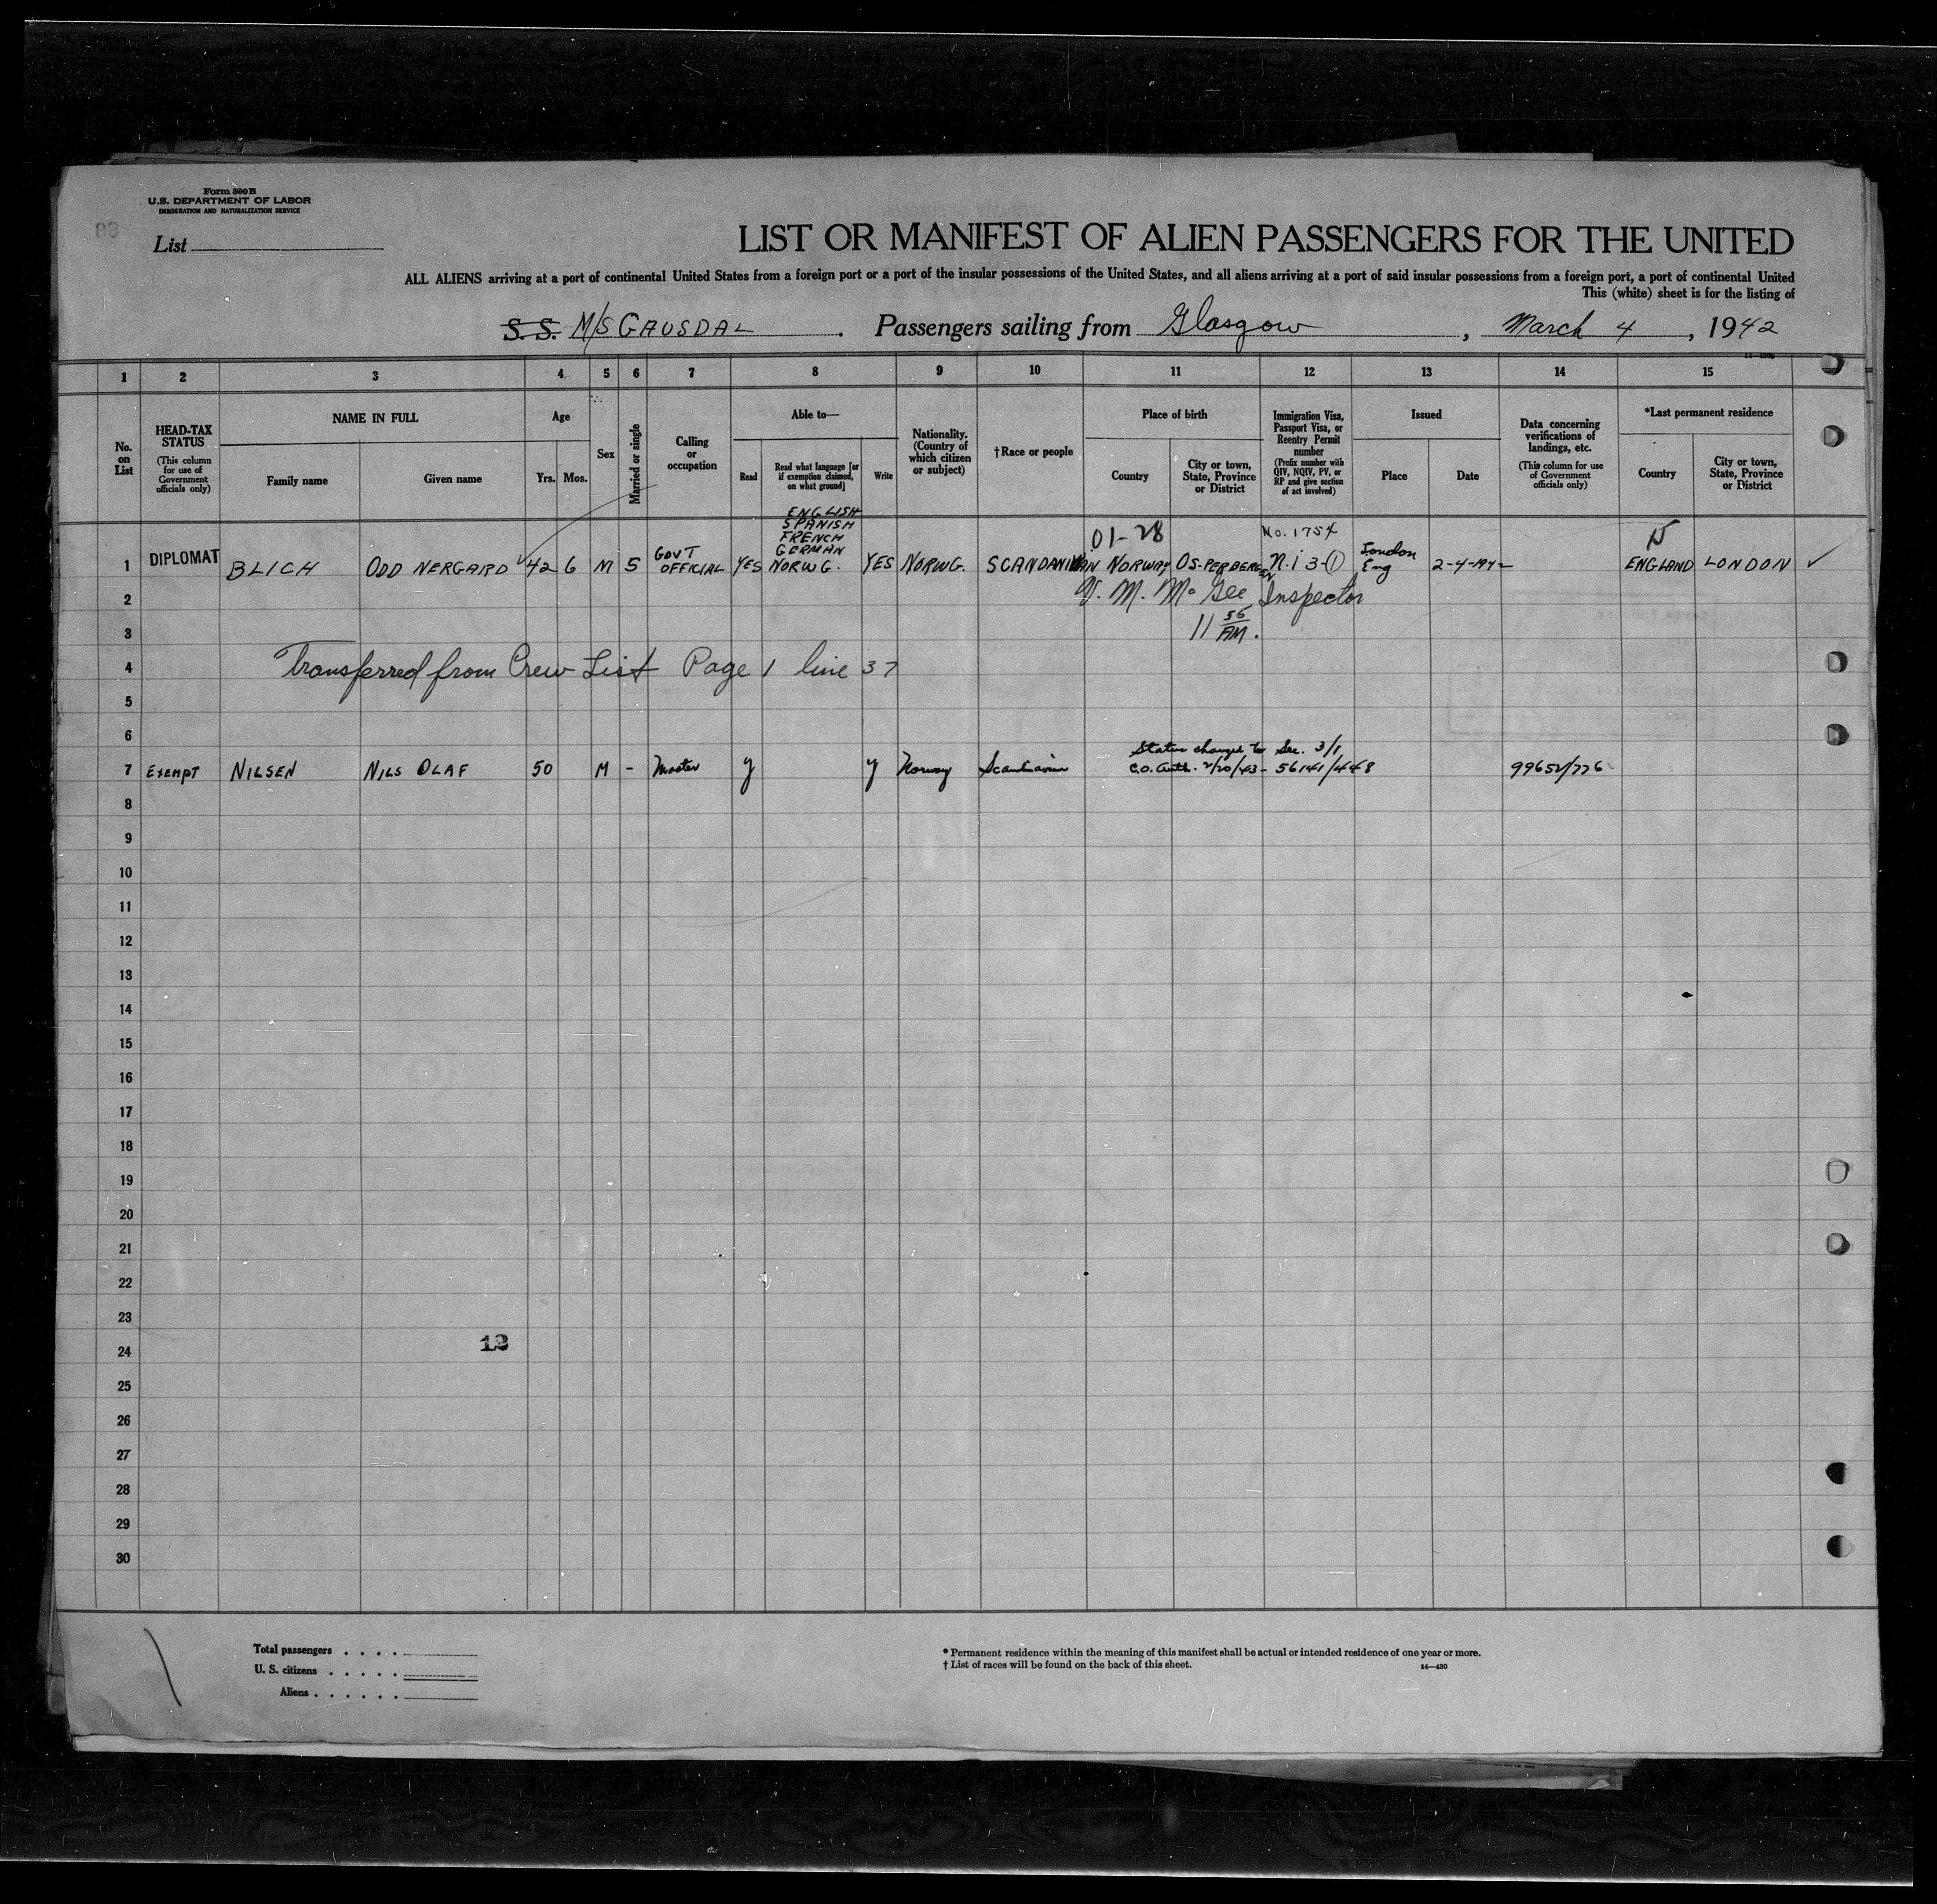 Form 500B
U.S. DEPARTMENT OF LABOR
IMMIGRATION AND NATURALIZATION SERVICE
List
LIST OR MANIFEST OF ALIEN PASSENGERS FOR THE UNITED
ALL ALIENS arriving at a port of continental United States from a foreign port or a port of the insular possessions of the United States, and all aliens arriving at a port of said insular possessions from a foreign port, a port of continental United
This (white) sheet is for the listing of
S. S. M/S GAUSDAL . Passengers sailing from Glasgow , March 4 , 1942
1 2 3 4 5 6 7 8 9 10 11 12 13 14 15
No. on List
HEAD-TAX STATUS (This column for use of Government officials only)
NAME IN FULL
Family name
Given name
Age
Yrs.
Mos.
Sex
Married or single
Calling or occupation
Able to—
Read
Read what language [or if exemption claimed, on what ground]
Write
Nationality. (Country of which citizen or subject)
†Race or people
Place of birth
Country
City or town, State, Province or District
Immigration Visa, Passport Visa, or Reentry Permit number (Prefix number with QIV, NQIV, PV, or RP and give section of act involved)
Issued
Place
Date
Data concerning verifications of landings, etc. (This column for use of Government officials only)
*Last permanent residence
Country
City or town, State, Province or District
ENGLISH
SPANISH
FRENCH
GERMAN
01-28
No. 1754
1 DIPLOMAT BLICH ODD NERGAARD 42 6 M S GOVT OFFICIAL YES NORWG. YES NORWG. SCANDANIVIAN NORWAY N.i 3-(1) London Eng 2-4-1942 ENGLAND LONDON ✓
2 V. M. McGee Inspector
3 11 55 AM.
4 Transferred from Crew List Page 1 line 37
5
6 Status changed to Sec. 3/1
7 EXEMPT NILSEN NILS OLAF 50 M - Master y y Norway Scandinavian C.O. Auth. 2/20/43 - 56141/448 99652/776
8
9
10
11
12
13
14
15
16
17
18
19
20
21
22
23
24
25
26
27
28
29
30
Total passengers
U. S. citizens
Aliens
* Permanent residence within the meaning of this manifest shall be actual or intended residence of one year or more.
† List of races will be found on the back of this sheet.
14—430